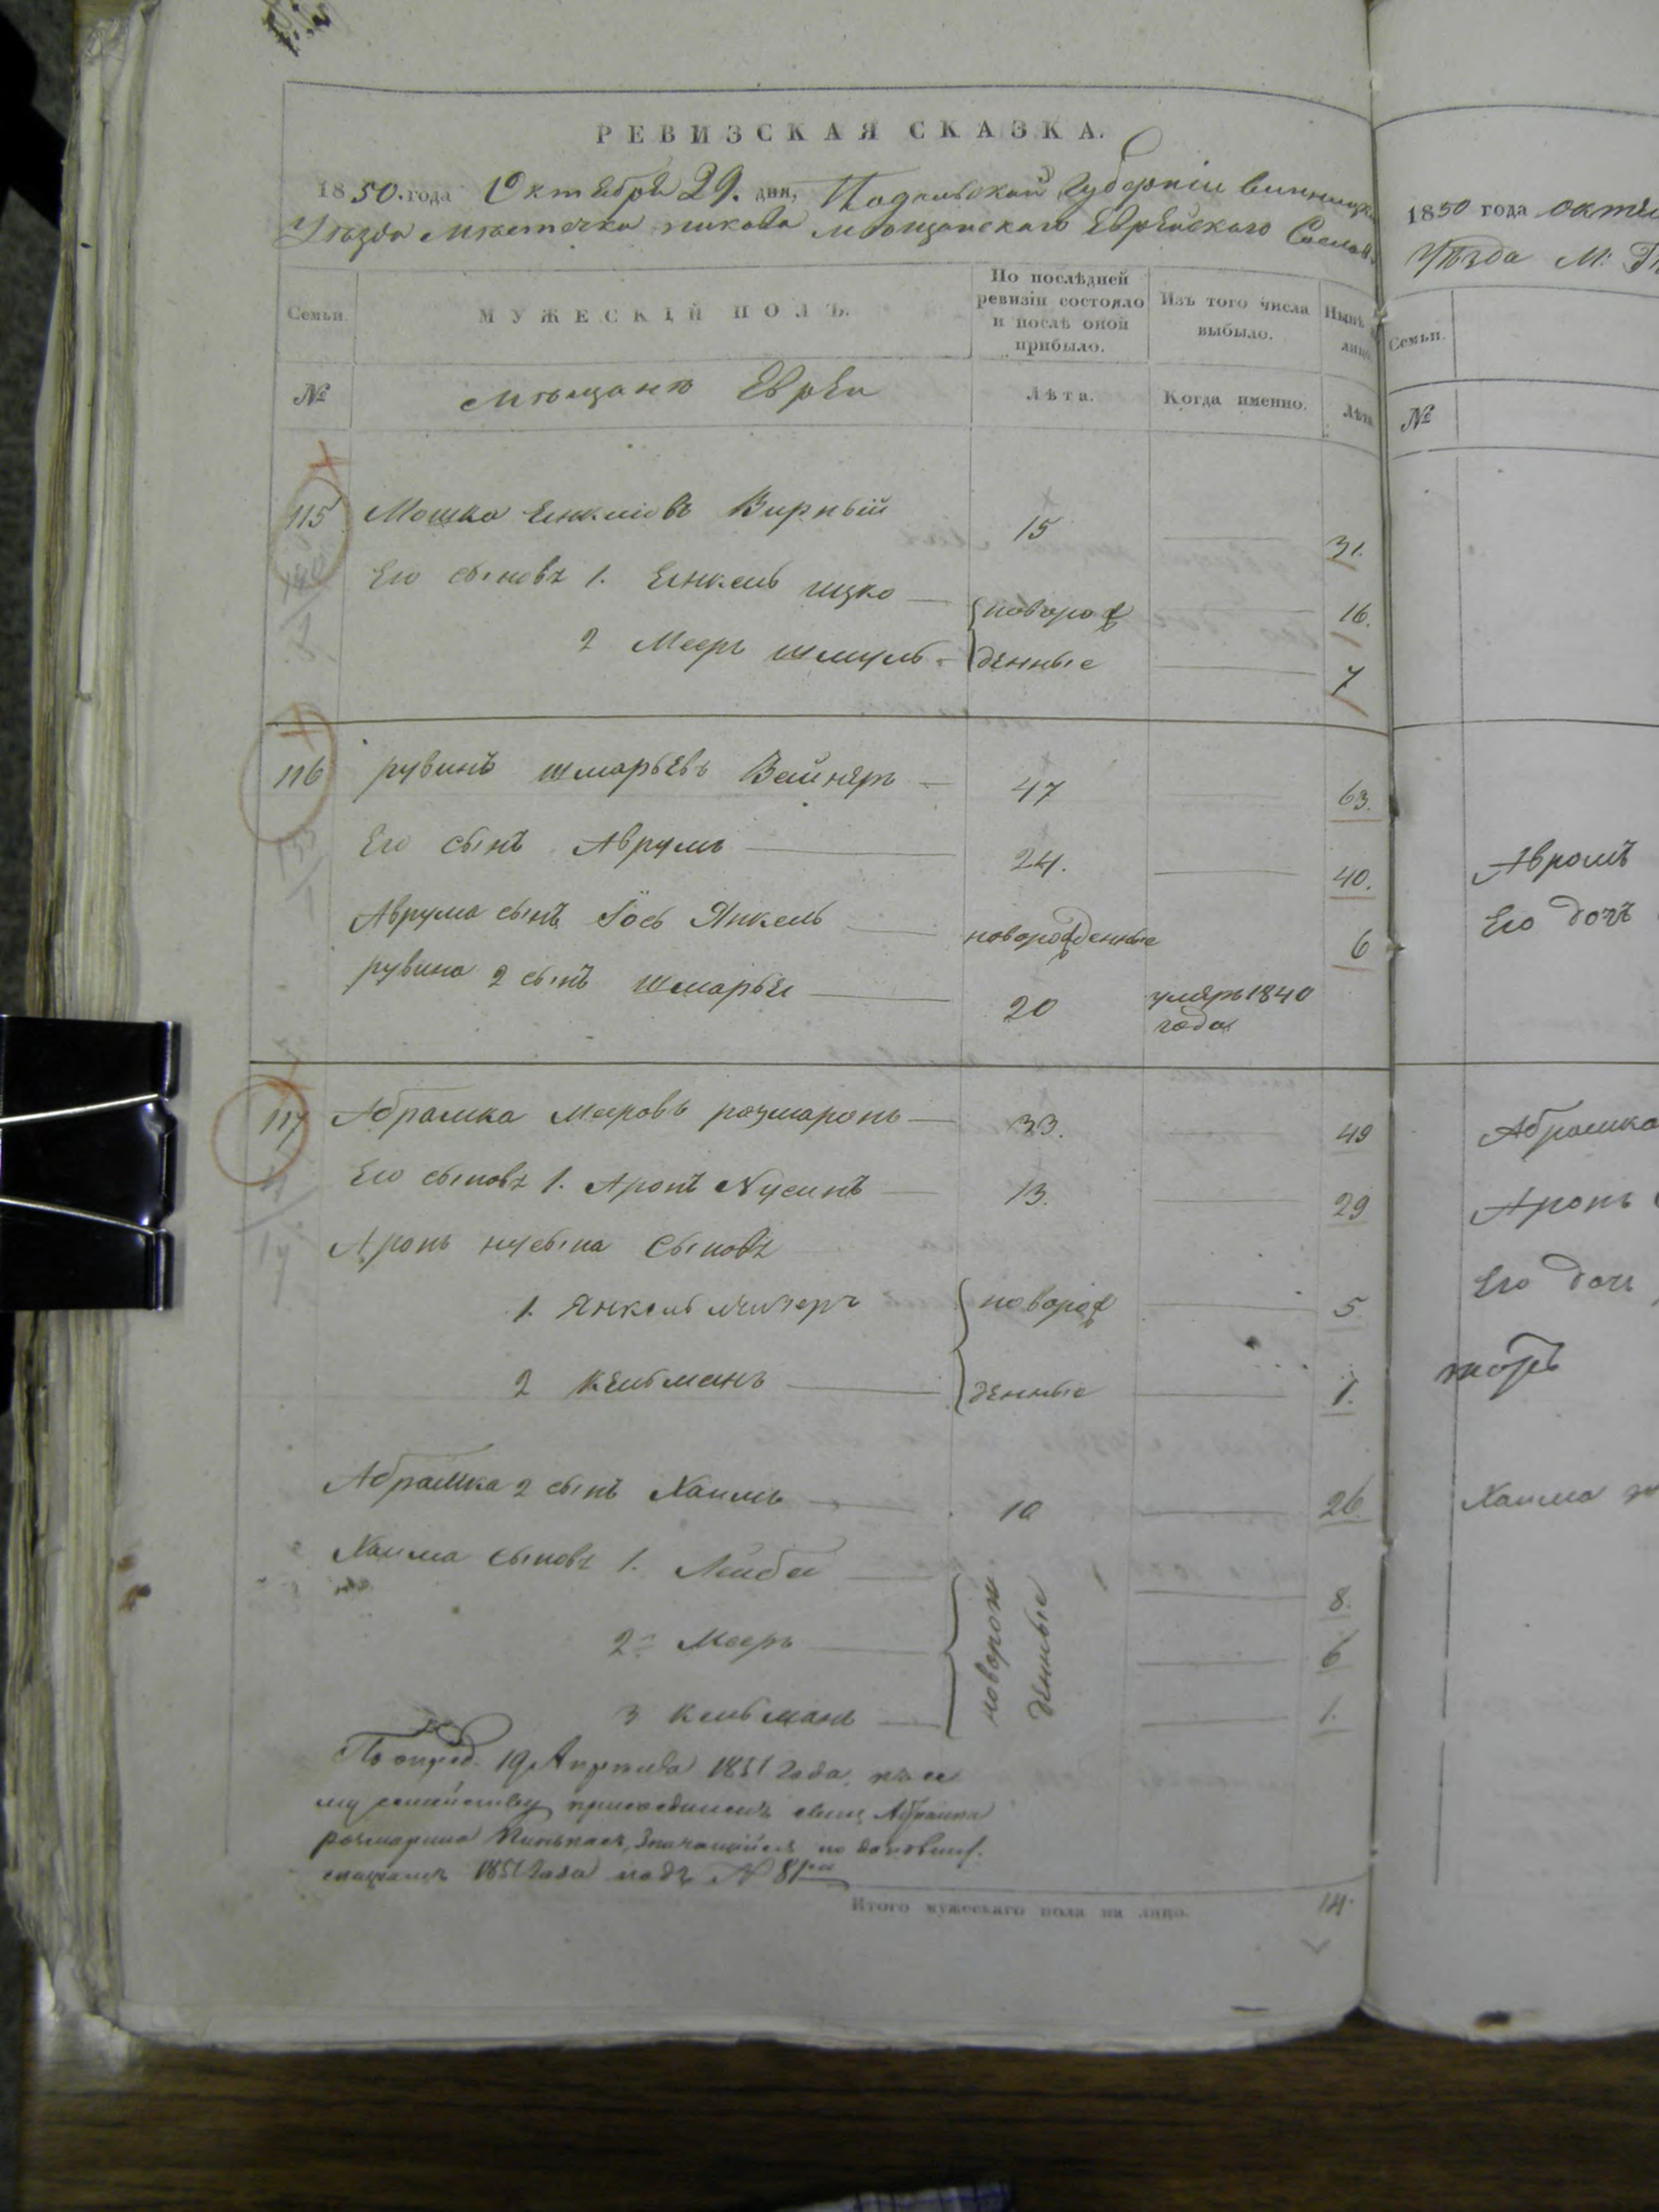 РЕВИЗСКАЯ СКАЗКА.
1850. года Октября 29. дня, Подольской Губерніи Винницка
Уезда Мѣстечка пикова мѣщанскаго Еврейскаго Сослов.
Семьи.
МУЖЕСКІЙ ПОЛЪ.
По послѣдней ревизіи состояло и послѣ оной прибыло.
Изъ того числа выбыло.
Нынѣ лицо.
№
мѣщанъ Евреи
Лѣта.
Когда именно.
Лѣта
115 Мошко Енкиовъ Вирный 15 31.
Его сыновя 1. Енкель ицко новорож 16.
2 Мееръ шмуль денные 7
116 рувинъ шмарьевъ Вайнеръ 47 63.
Его сынъ Аврумъ 24. 40.
Аврума сынъ Іось Янкель новорожденные 6
рувина 2 сынъ шмарье 20 умеръ 1840
года
117 Абрамка Мееровъ розмаронъ 33. 49
Его сыновя 1. Аронъ Нусинъ 13. 29
Аронъ нусына Сыновя
1. Янкель новорож 5.
2 Кельманъ денные 1.
Абрамка 2 сынъ Хаимъ 10 26.
Хаима сыновя 1. Лейба новорож 8.
2 Мееръ денные 6
3 Кельманъ 1.
По опред. 19 Апреля 1851 Года, къ се
му семейству присоединенъ сынъ Абрамка
розмарина Пинькасъ, Значащійся по
1851 Года подъ № 81
Итого мужескаго пола на лицо. 14.
1850 года октя
Уѣзда М:
Семьи.
№
Авромъ
Его дочъ
Абрамка
Аронъ
Его доч
Хаима